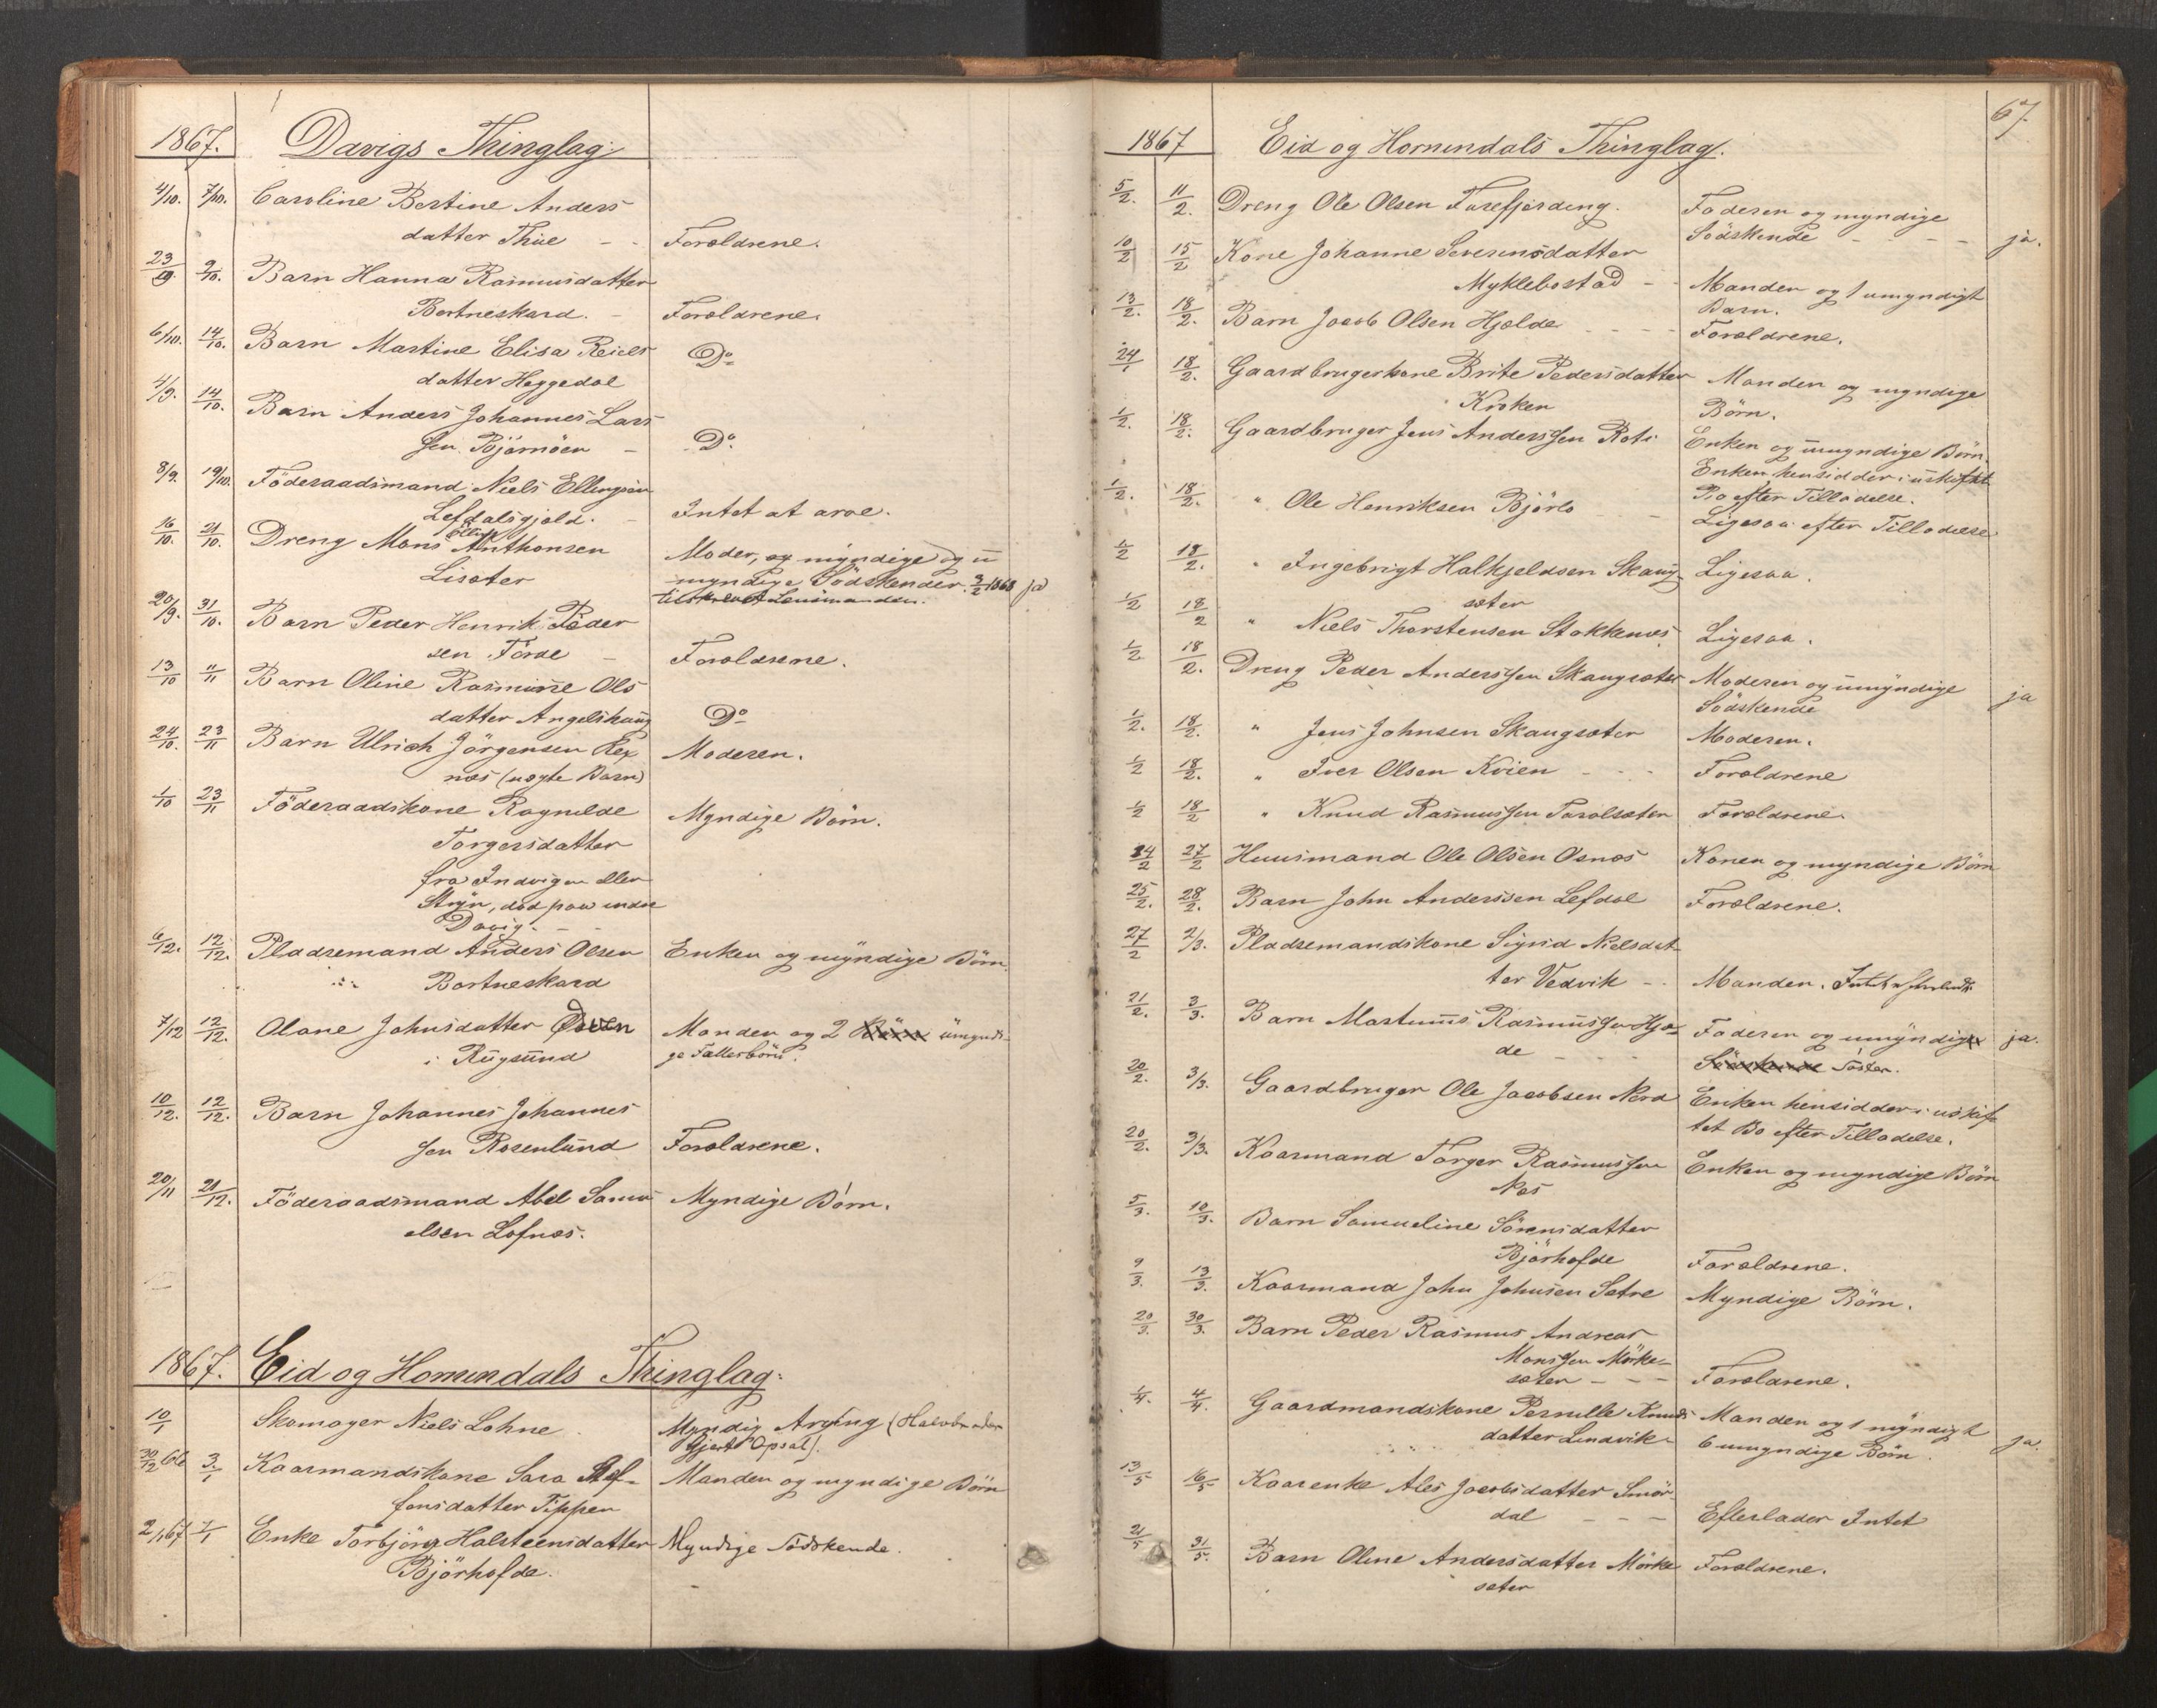 1867. Davigs Thinglag.
4/10. 7/10. Caroline Bertine Anders
datter Thue - - Forældrene.
23/9. 9/10. Barn Hanna Rasmusdatter
Bortneskard. - Forældrene.
6/10. 14/10. Barn Martine Elisa Reiels Do
datter Heggedal
4/9. 14/10. Barn Anders Johannes Lars
sen Björnöen - Do
8/9. 19/10. Föderaadsmand Niels Ellingsen
Lefdalsgjeld. - Intet at arve.
16/10. 21/10. Dreng Mons Anthonsen Moder, og myndige og u
Lisæter myndige Södskender. 3/2 1868 ja
tilskrevet Lensmanden.
20/9. 31/10. Barn Peder Henrik Peder
sen Förde - Forældrene.
13/10 11/11 Barn Oline Rasmine Ols
datter Angelskaug Do
24/10. 23/11 Barn Ulrich Jörgensen Rex Moderen.
næs (uægte Barn)
1/10 23/11 Föderaadskone Ragnilde Myndige Börn.
Torgersdatter
fra Indvigen eller
Stryn, död paa indre
Davig. - -
6/12. 12/12. Pladsemand Anders Olsen Enken og myndige Börn.
Bortneskard
7/12 12/12. Olane Johnsdatter Manden og 2 umyndi-
i Rugsund ge Fællesbörn.
10/12. 12/12. Barn Johannes Johannes
sen Rosenlund Forældrene.
20/11 21/12. Föderaadsmand Abel Samu Myndige Börn.
elsen Lefnæs.
1867. Eid og Hornindals Thinglag.
10/1 Skomager Niels Lohne Myndig Arving (Halvbroder
Gjert Opsal).
30/12 66 3/1 Kaarmandskone Sara Stef- Manden og myndige Börn
fensdatter Tippen
2/1 67 7/1 Enke Torbjörg Halsteensdatter Myndige Södskende.
Björhofde.
67.
1867 Eid og Hornindals Thinglag.
5/2. 11/2. Dreng Ole Olsen Torefjerding. Faderen og myndige
Södskende - - - - ja.
10/2 15/2 Kone Johanne Severinsdatter
Myklebostad - - Manden og 1 umyndigt
Barn.
13/2. 18/2. Barn Jacob Olsen Hjelde - - - - Forældrene.
24/1 18/2. Gaardbrugerkone Brite Pedersdatter Manden og myndige
Kroken Börn.
1/2. 18/2. Gaardbruger Jens Anderssen Roti Enken og umyndige Börn.
Enken hensidder i uskiftet
Bo efter Tilladelse.
1/2. 18/2. " Ole Henriksen Björlo - Ligesaa efter Tilladelse
1/2 18/2. " Ingebrigt Halkjeldsen Skaug- Ligesaa.
sæter
1/2 18/2 " Niels Thorstensen Stokkenæs Ligesaa.
1/2 18/2. Dreng Peder Anderssen Skaugsæter Moderen og umyndige
Södskende ja
1/2. 18/2. " Jens Johnsen Skaugsæter Moderen.
1/2 18/2. " Iver Olsen Kvien - - - Forældrene
1/2 18/2 " Knud Rasmussen Taralsæter Forældrene.
24/2 27/2 Huusmand Ole Olsen Osnæs Konen og myndige Börn
25/2. 28/2. Barn John Anderssen Lefdal Forældrene.
27/2 2/3. Pladsemandskone Sigrid Nielsdat-
ter Vedvik - - Manden.
21/2. 3/3. Barn Martinus Rasmussen Hjel-
de - - - - Faderen og umyndige ja.
Söster.
20/2. 3/3. Gaardbruger Ole Jacobsen Nord Enken hensidder i uskif-
tet Bo efter Tilladelse.
20/2. 3/3. Kaarmand Torger Rasmussen Enken og myndige Börn
Nos
5/3. 10/3. Barn Samueline Sörensdatter
Björhofde Forældrene.
9/3. 13/3. Kaarmand John Johnsen Sætre Myndige Börn.
20/3. 30/3. Barn Peder Rasmus Andreas
Monssen Mörke-
sæter - - - Forældrene.
1/4 4/4. Gaardmandskone Pernille Knuds Manden og 1 myndigt
datter Lundvik- 6 umyndige Börn. ja.
13/5 16/5 Kaarenke Ales Jacobsdatter Smör-
dal - - - Efterlader Intet
21/5 31/5. Barn Oline Andersdatter Mörke Forældrene.
sæter